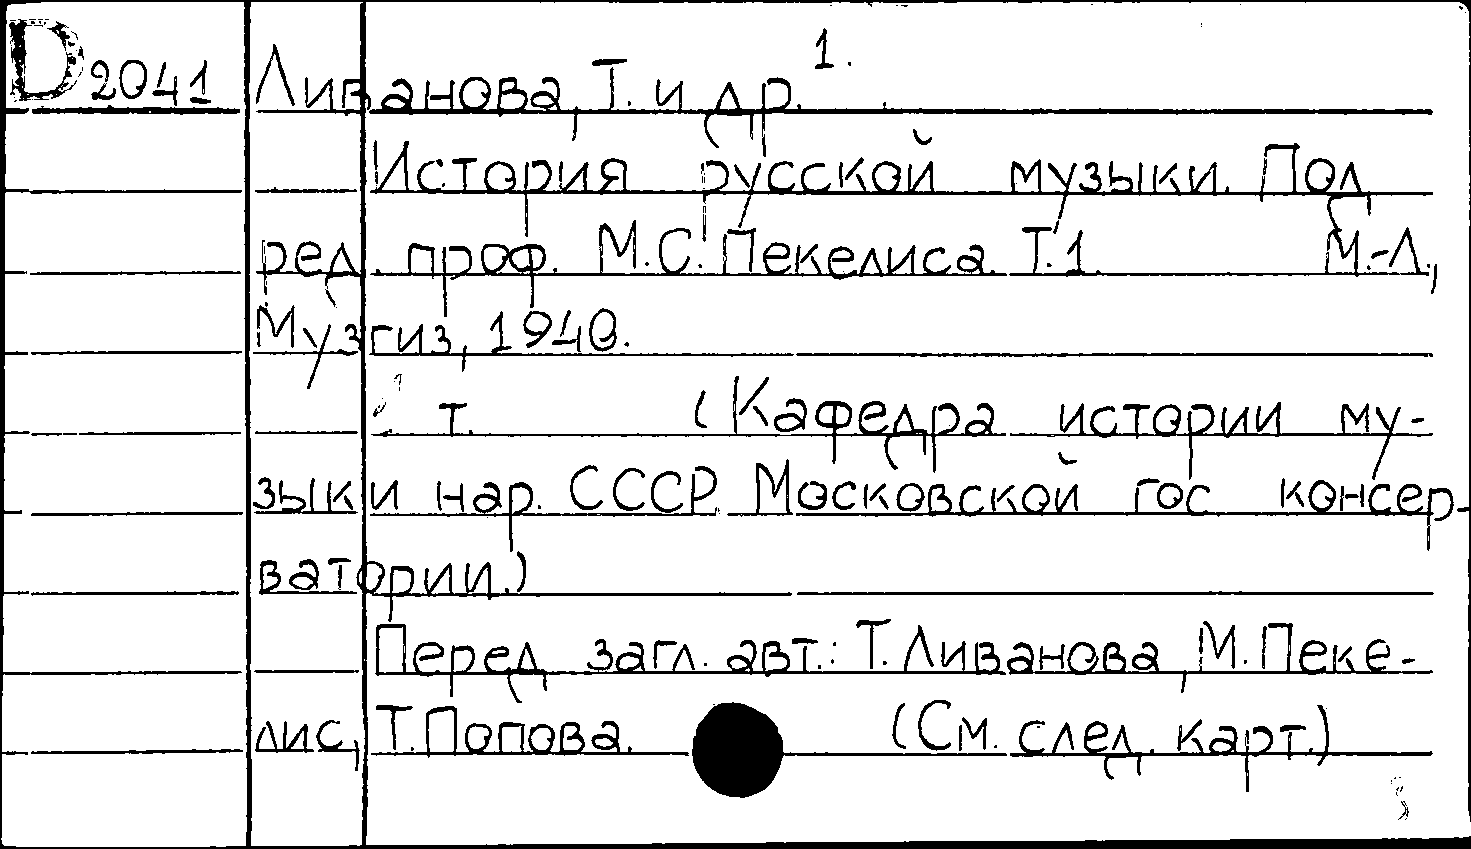 D 2041 Ливанова, Т. и др. 1.
История русской музыки. Под
ред. проф. М.С. Пекелиса. Т.1. М.-Л.,
Музгиз, 1940.
т. (Кафедра истории му-
зыки нар. СССР Московской гос консер-
ватории.)
Перед загл. авт.: Т. Ливанова, М. Пеке-
лис, Т. Попова. (См. след. карт.)